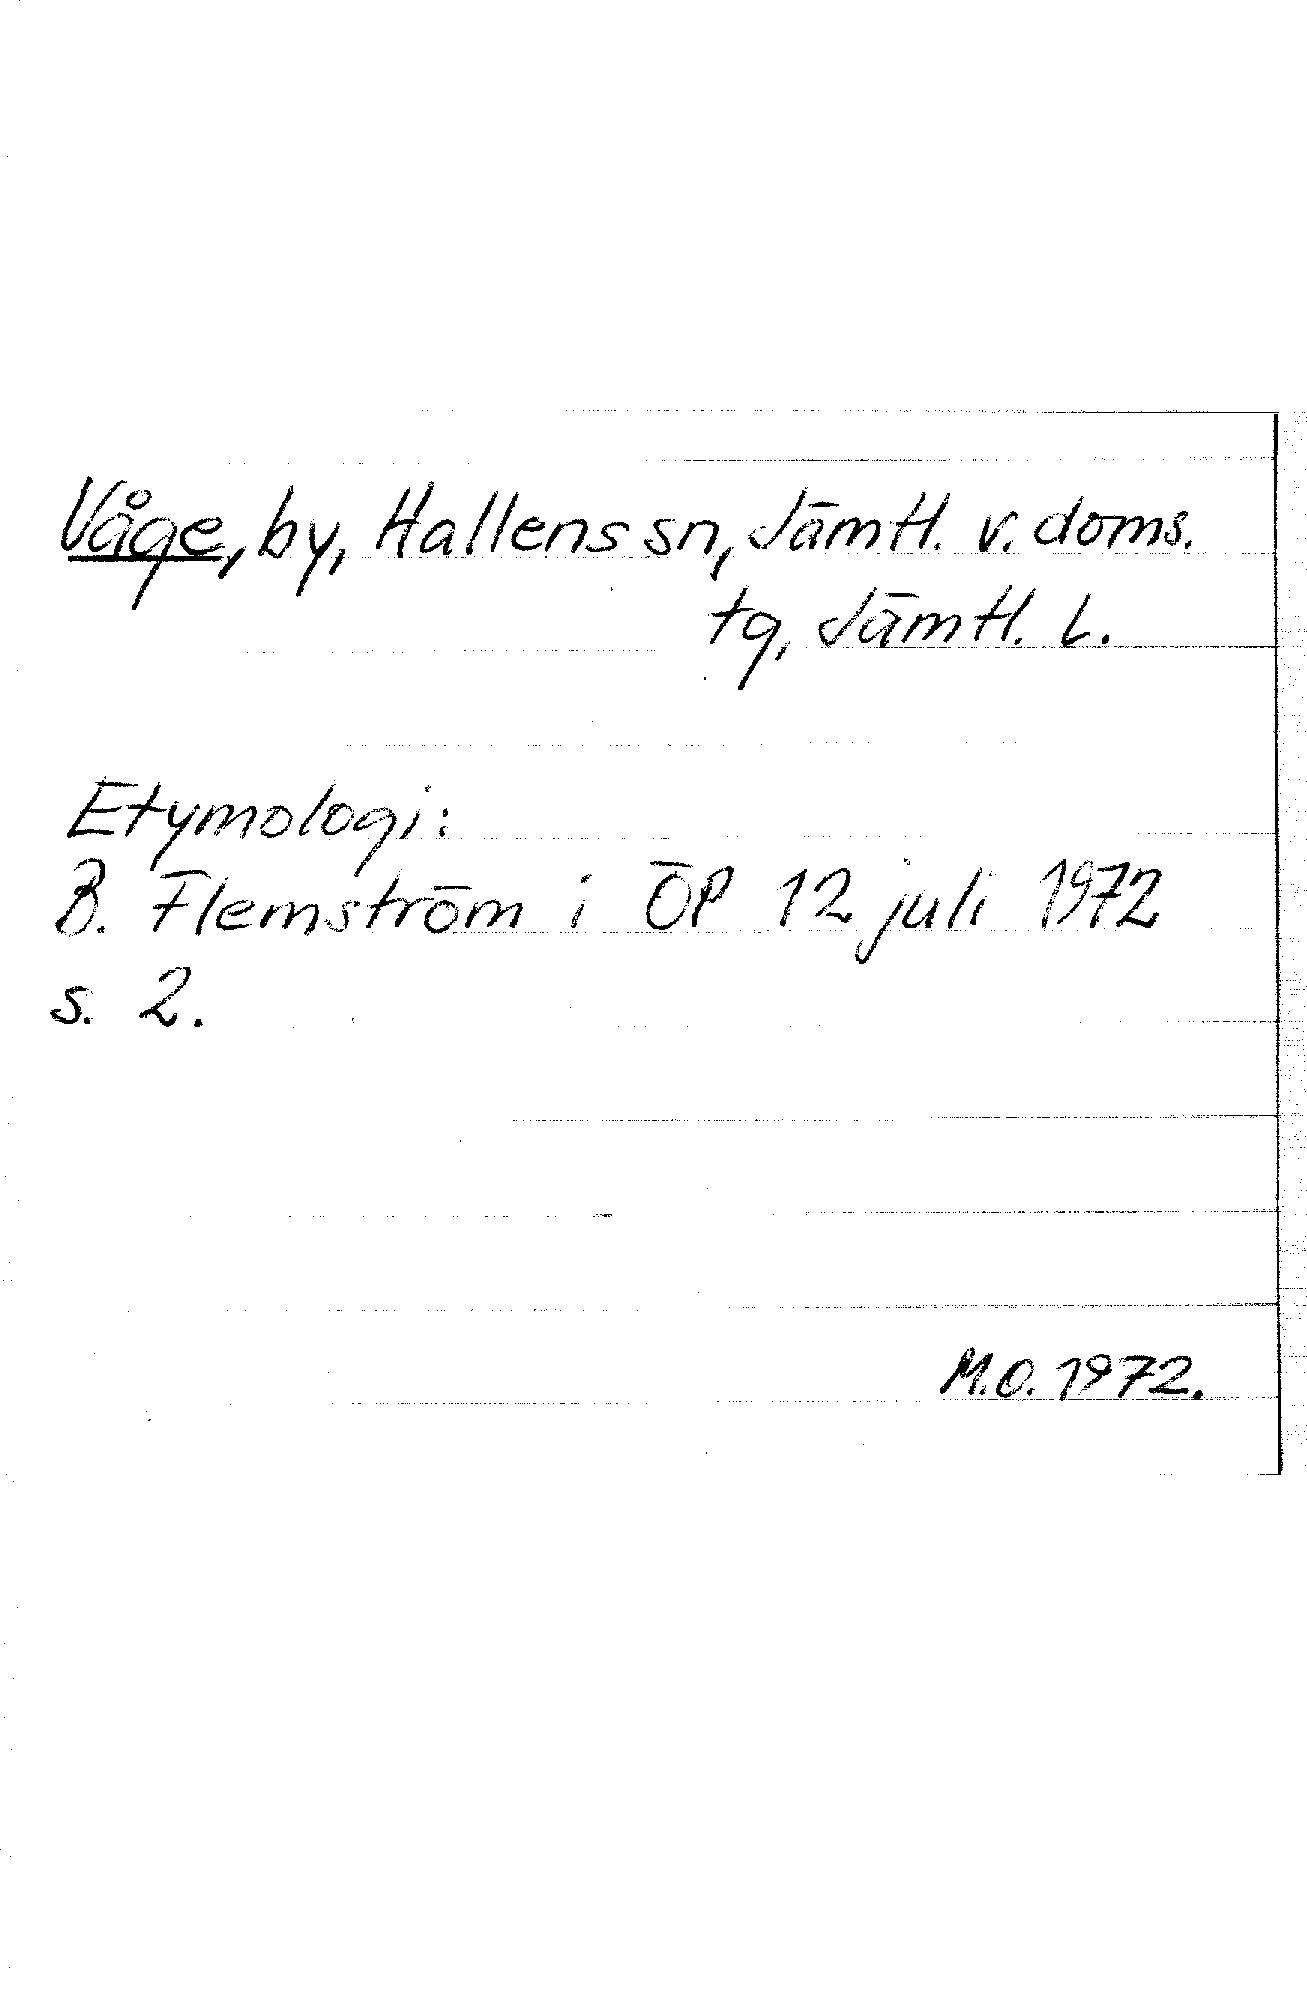 Våge, by, Hallens sn, Jämtl. v. doms.
tg, Jämtl. l.
Etymologi:
B. Flemström i ÖP 12 juli 1972
s. 2.
M.O. 1972.